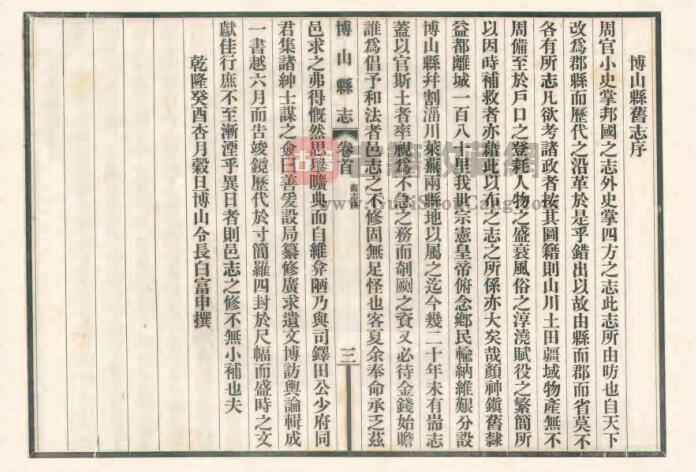 博山縣舊志序
周官小史掌邦國之志外史掌四方之志此志所由昉也自天下
改爲郡縣而歷代之沿革於是乎錯出以故由縣而郡而省莫不
各有所志凡欲考諸政者按其圖籍則山川土田疆域物產無不
周備至於戶口之登耗人物之盛衰風俗之淳澆賦役之繁簡所
以因時補救者亦藉此以使之志之所係亦大矣哉顏神鎮舊隸
益都離城一百八十里我世宗憲皇帝俯念鄉民輸納維艱分設
博山縣幷割淄川萊蕪兩縣地以屬之迄今幾二十年未有耑志
蓋以官斯土者率視爲不急之務而剞劂之資又必待金錢始贍
誰爲倡予和法者邑志之不修固無足怪也客夏余奉命承乏茲
博山縣志
卷首
舊志序
三
邑求之弗得慨然思舉曠典而自維弇陋乃與司鐸田公少府同
君集諸紳士謀之僉曰善爰設局纂修廣求遺文博訪輿論輯成
一書越六月而告竣鏡歷代於寸簡羅四封於尺幅而盛時之文
獻佳行庶不至漸湮乎異日者則邑志之修不無小補也夫
乾隆癸酉杏月穀旦博山令長白富申撰